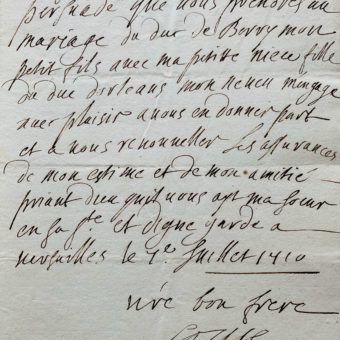 persuadé que vous prendrés au
mariage du duc de Berry mon
petit fils avec ma petitte niece fille
du duc dorleans mon neveu mengage
avec plaisir a vous en donner part
et a vous renouveller les assurances
de mon estime et de mon amitié
priant dieu quil vous ayt ma soeur
en sa ste et digne garde a
versailles le 1e Juillet 1710
vre bon frere
Louis